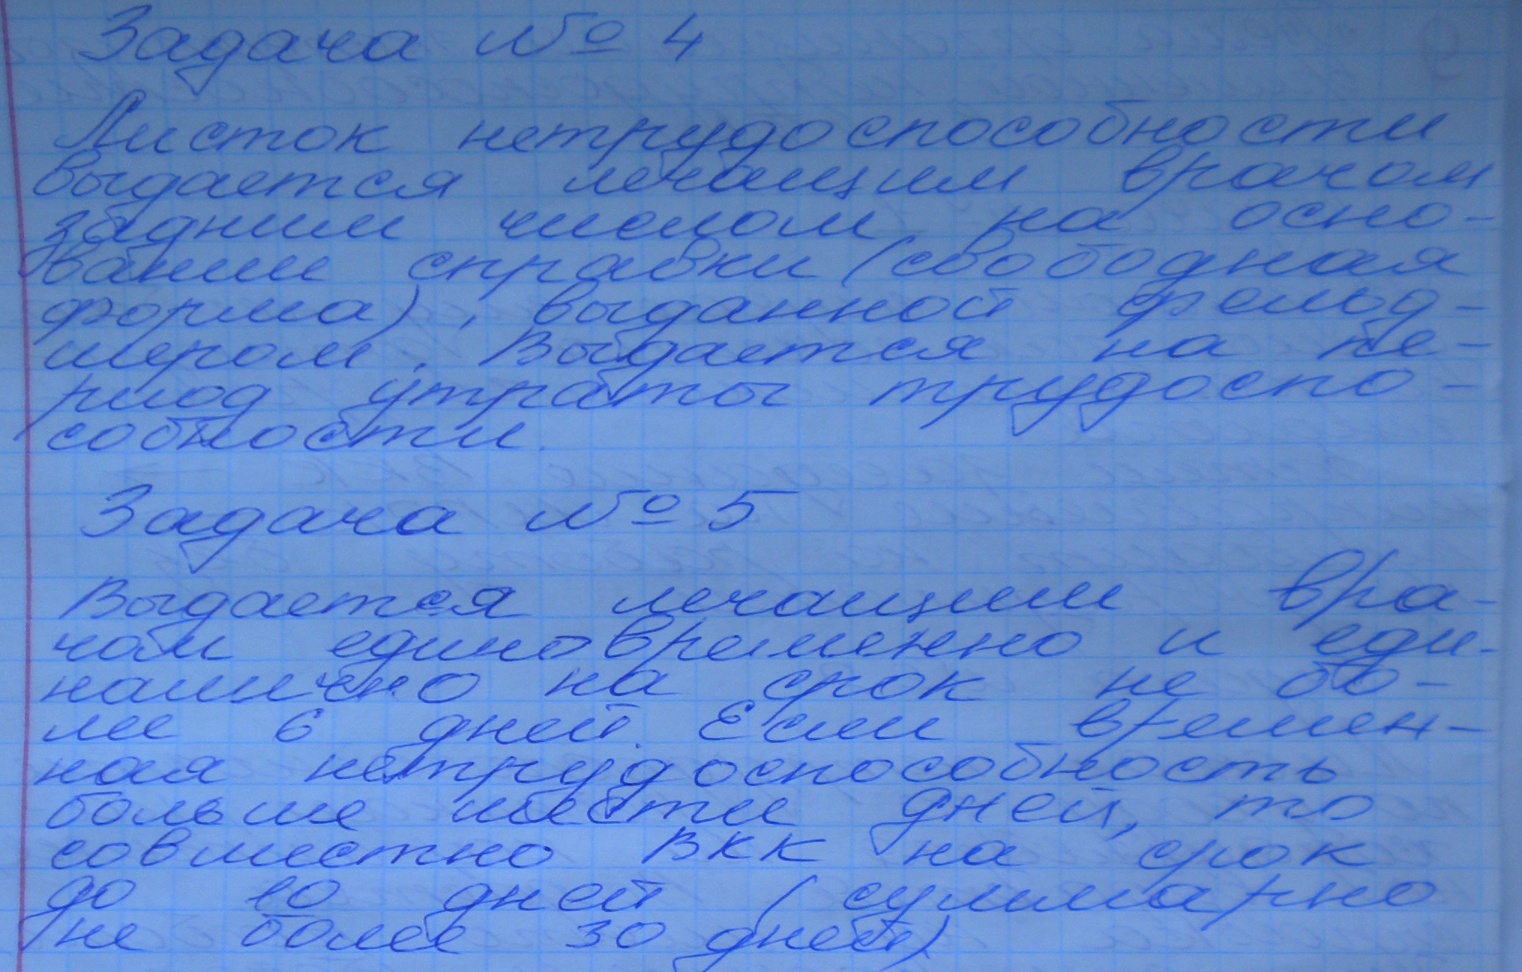 Задача № 4
Листок нетрудоспособности
выдается лечащим врачом
задним числом на осно-
вании справки (свободная
форма), выданной фельд-
шером. Выдается на пе-
риод утраты трудоспо-
собности.
Задача № 5
Выдается лечащим вра-
чом единовременно и еди-
налично на срок не бо-
лее 6 дней. Если времен-
ная нетрудоспособность
больше шести дней, то
совместно ВКК на срок
до 10 дней (суммарно
не более 30 дней)